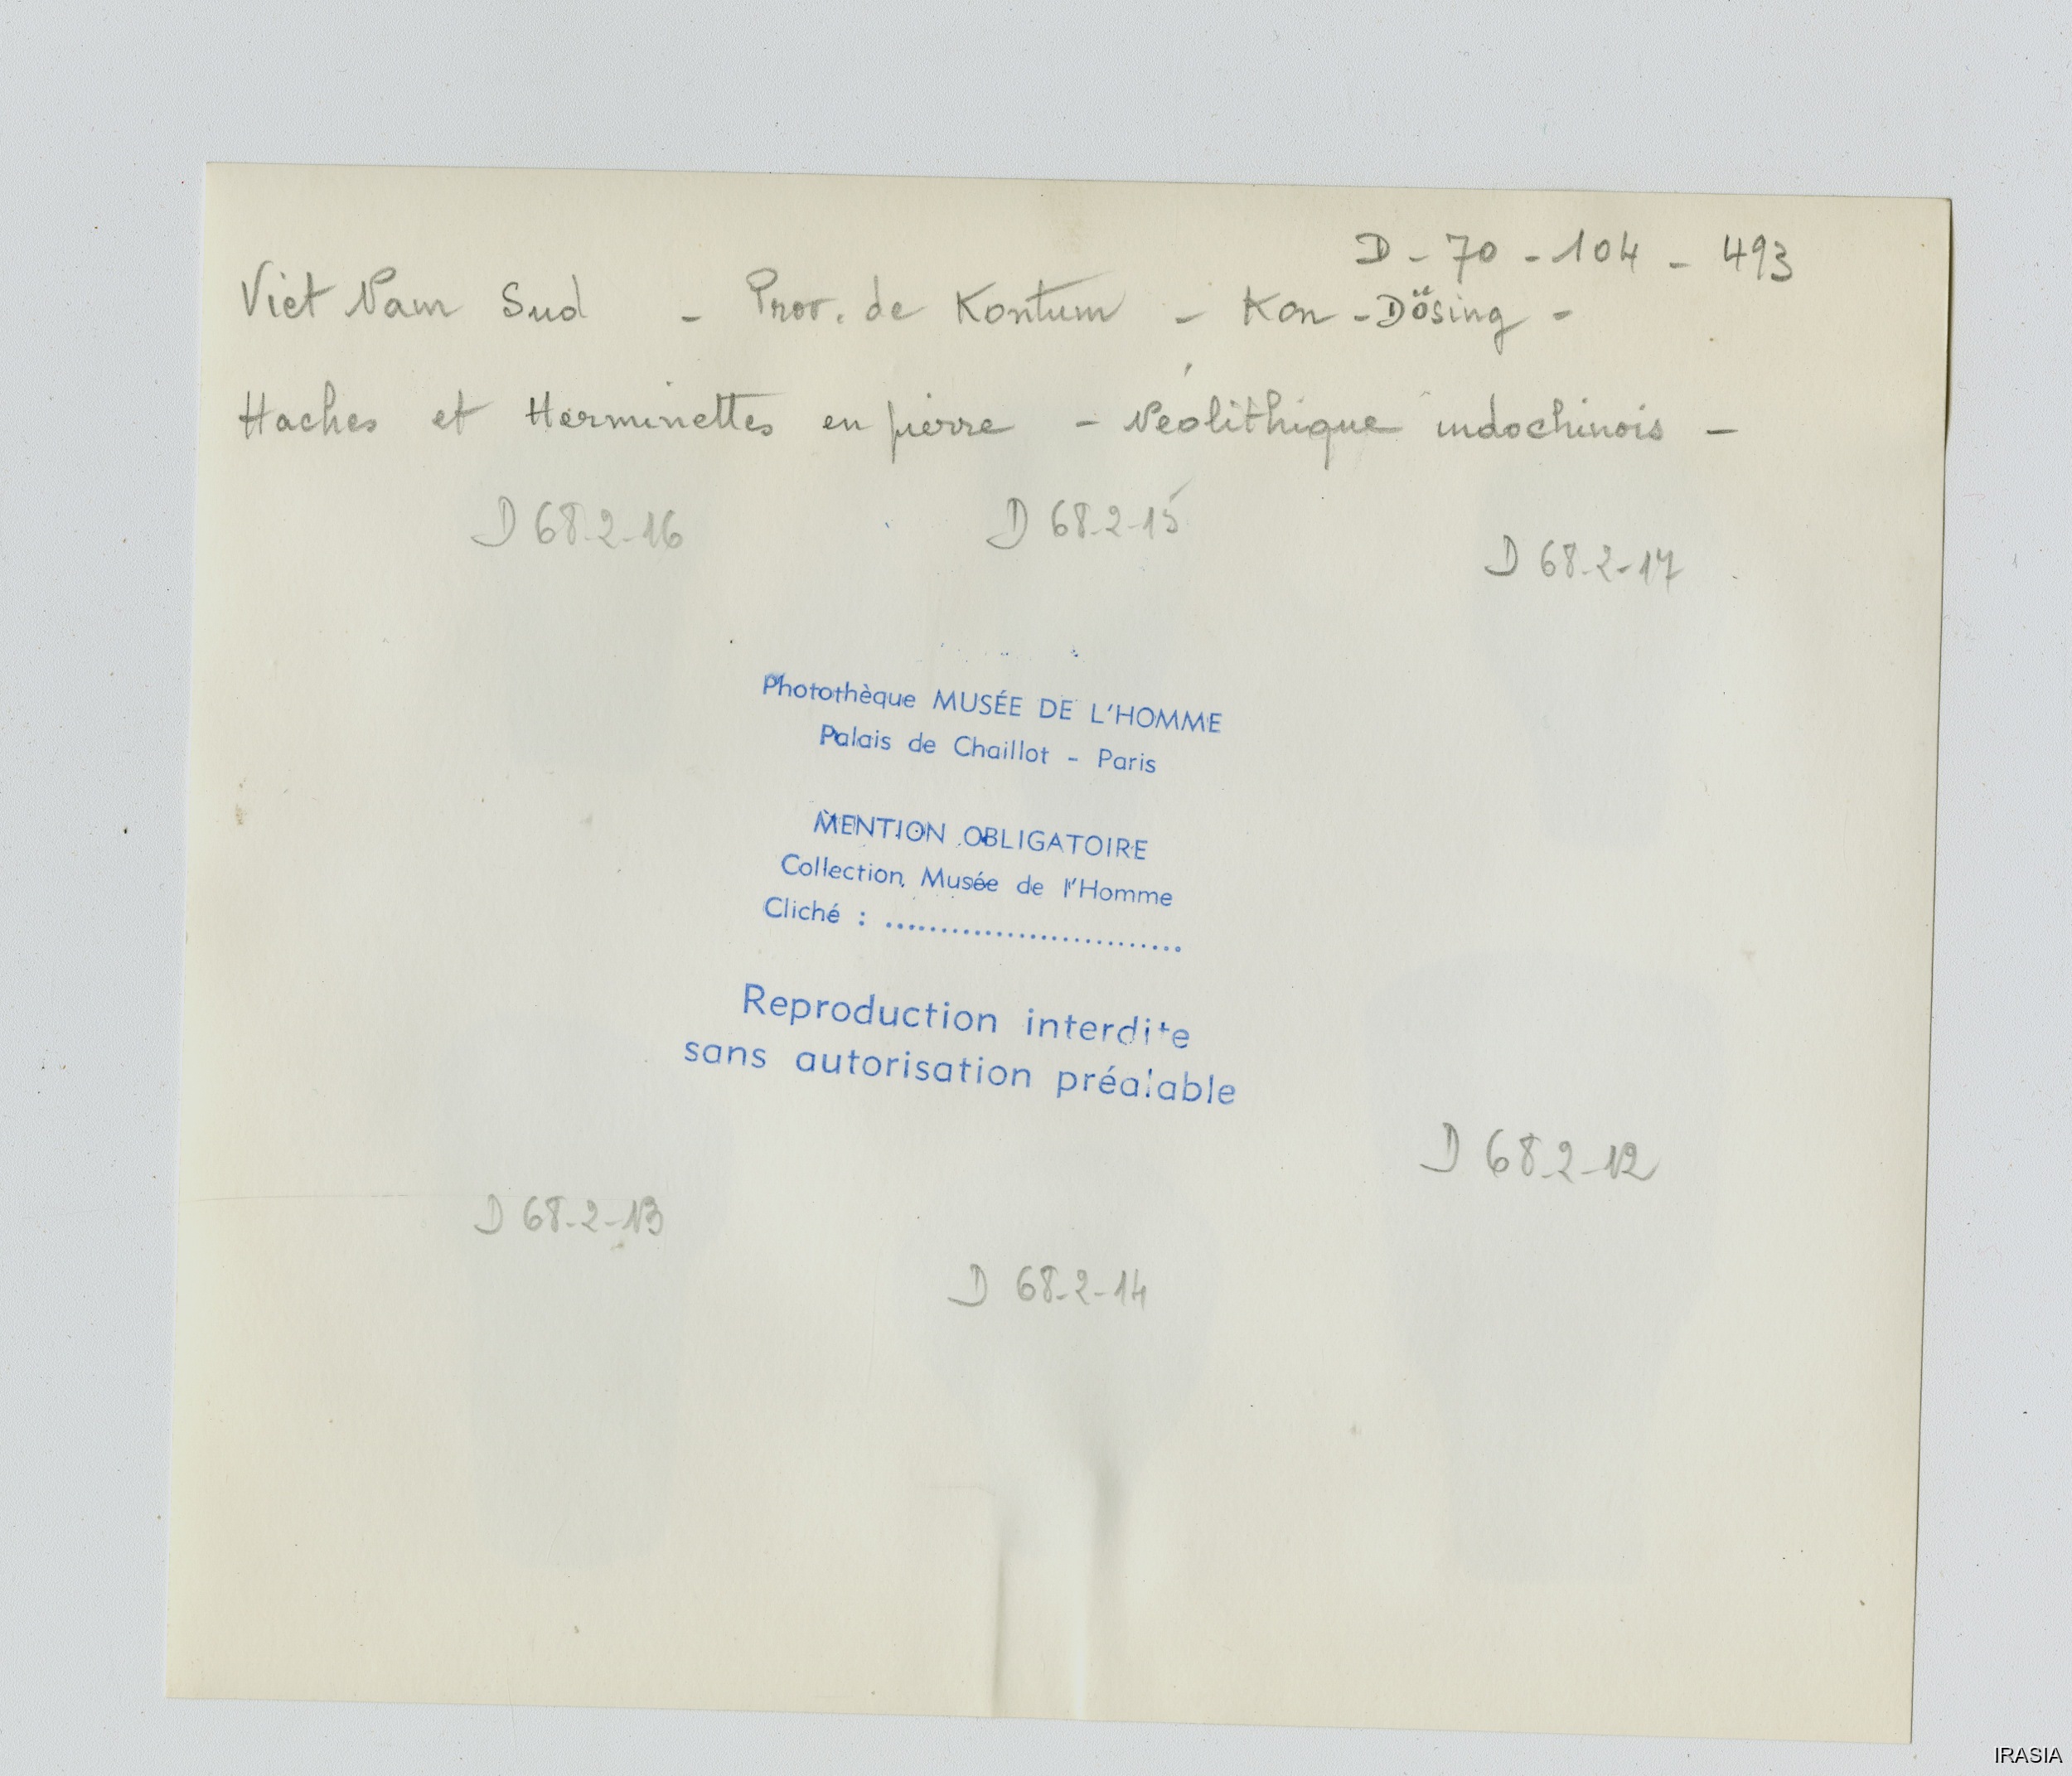 D - 70 - 104 - 493
Viet Nam Sud - Prov. de Kontum - Kon - Dösing -
Haches et Herminettes en pierre - Néolithique indochinois -
D 68-2-16 D 68-2-15 D 68-2-17
Photothèque MUSÉE DE L'HOMME
Palais de Chaillot - Paris
MENTION OBLIGATOIRE
Collection Musée de l'Homme
Cliché : ..............................
Reproduction interdite
sans autorisation préalable
D 68-2-12
D 68-2-13
D 68-2-14
IRASIA